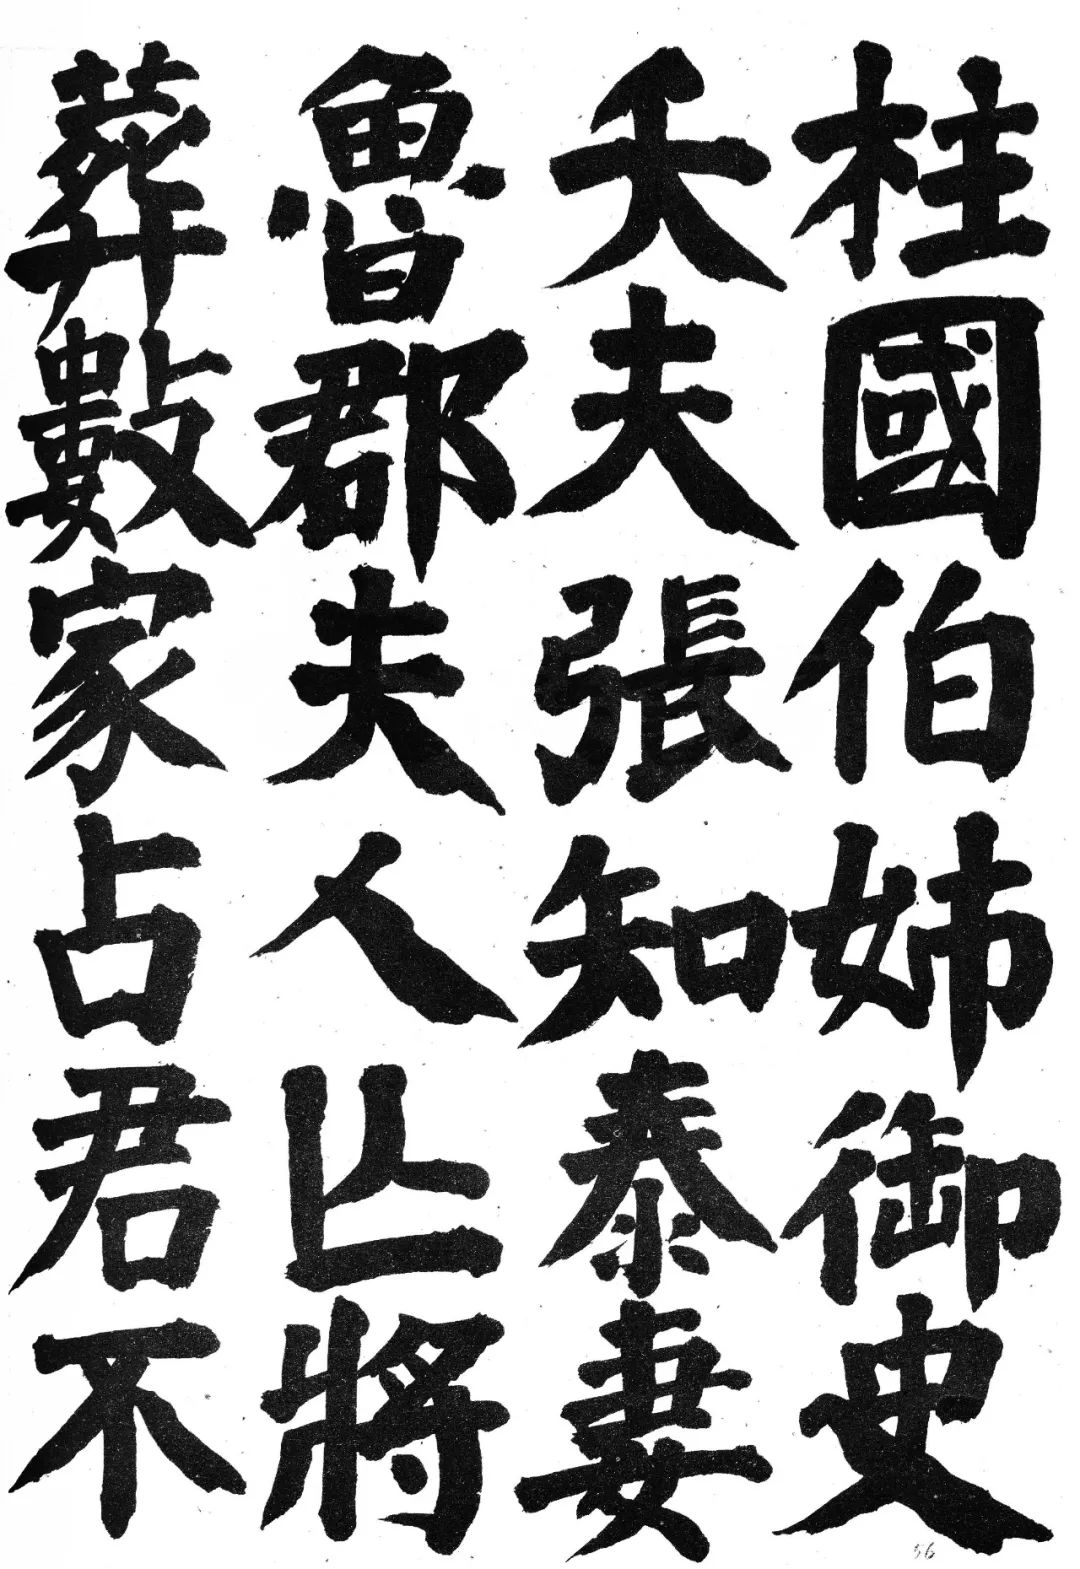 柱國伯姉御史
大夫張知泰妻
魯郡夫人亾將
葬數家占君不
56